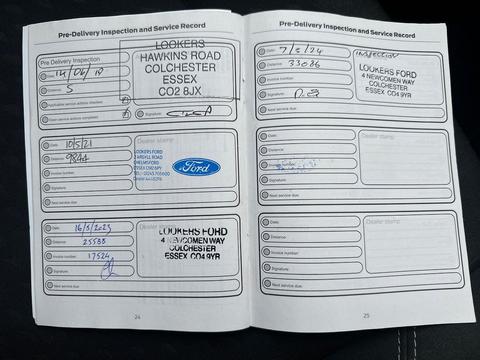 Pre-Delivery Inspection and Service Record
Pre Delivery Inspection
Date:
Distance: 5
Applicable service actions checked
Open service actions completed
Signature:
LOOKERS
HAWKINS ROAD
COLCHESTER
ESSEX
CO2 8JX
Date: 10/5/21
Distance: 9844
Invoice number:
Signature:
Next service due:
Dealer stamp
LOOKERS FORD
ARGYLL ROAD
ESSEX
Ford
Date: 16/5/2023
Distance: 25588
Invoice number: 17524
Signature:
Next service due:
LOOKERS FORD
4 NEWCOMEN WAY
COLCHESTER
ESSEX CO4 9YR
24
Pre-Delivery Inspection and Service Record
Date: 7/5/24
Distance: 33086
Invoice number:
Signature:
Next service due:
INSPECTION
LOOKERS FORD
4 NEWCOMEN WAY
COLCHESTER
ESSEX CO4 9YR
Date:
Distance:
Signature:
Next service due:
Dealer stamp
Date:
Distance:
Invoice number:
Signature:
Next service due:
Dealer stamp
25